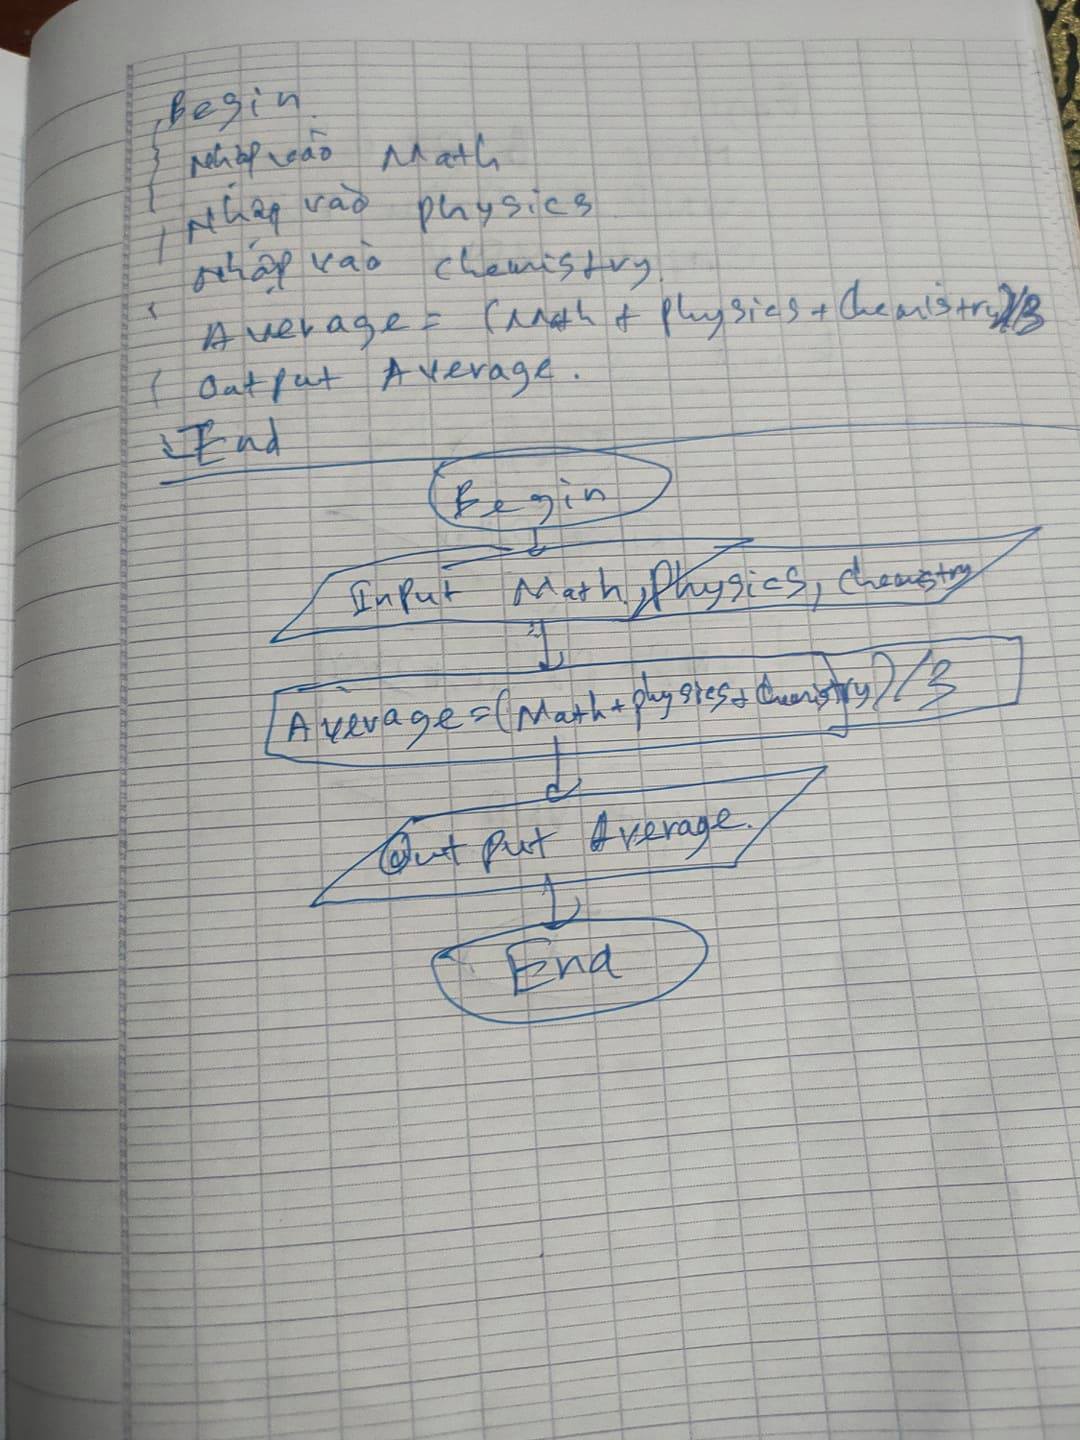 Begin.
Nhập vào Math
Nhập vào physics
Nhập vào chemistry.
Average = (Math + physics + Chemistry)/3
Output Average.
End
Begin
Input Math, physics, chemistry
Average = (Math + physics + Chemistry)/3
Output Average.
End